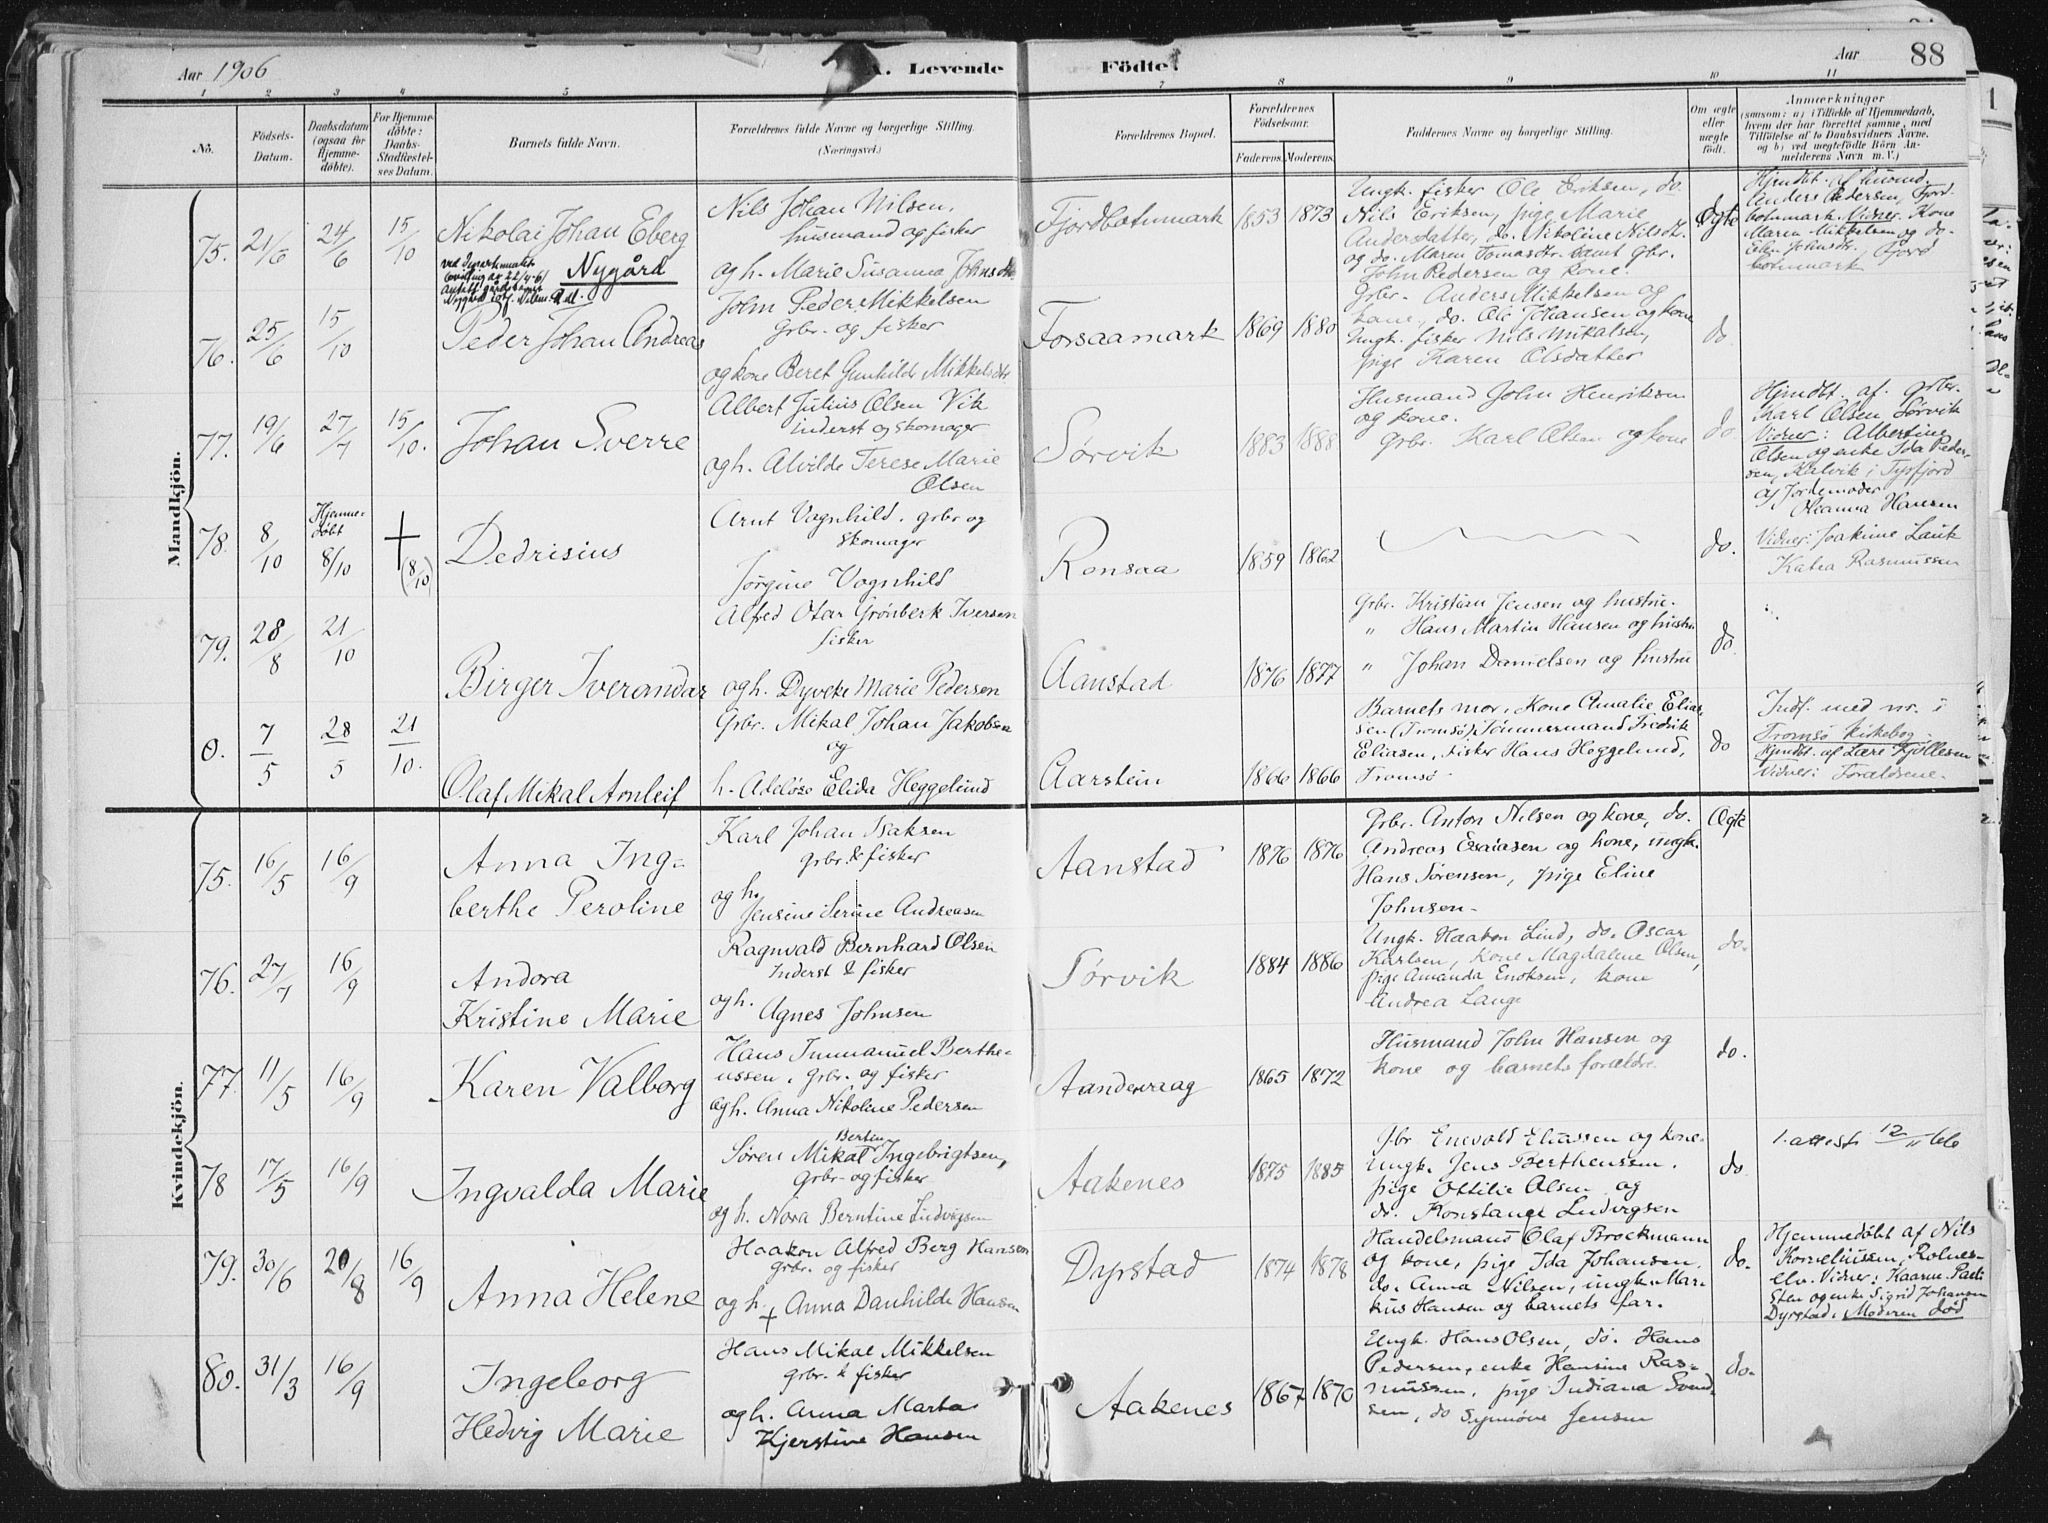 Aar 1906
A. Levende Födte.
Aar 88
1 2 3 4 5 7 8 9 10 11
No.
Födsels-Datum.
Daabsdatum (ogsaa for Hjemmedöbte).
For Hjemmedöbte: Daabs-Stadfæstelses Datum.
Barnets fulde Navn.
Forældrenes fulde Navne og borgerlige Stilling.
(Næringsvei.)
Forældrenes Bopæl.
Forældrenes Födselsaar.
Faderens. Moderens.
Faddernes Navne og borgerlige Stilling.
Om ægte eller uægte födt.
Anmærkninger
(saasom: a) i Tilfælde af Hjemmedaab, hvem der har forrettet samme, med Tilföielse af to Daabsvidners Navne, og b) ved uægtefödte Börn Anmelderens Navn m. V.)
Mandkjön.
75. 21/6 24/6 15/10
Nikolai Johan Eberg
Nygård
Nils Johan Nilsen,
husmand og fisker
og h. Marie Susanna Johnsdtr
Fjordbotnmark 1853 1873
Ungk. fisker Ole Eriksen, do.
Nils Eriksen, pige Marie
Andersdatter, do. Nikoline Nilsdtr.
og do. Maren Tomasdtr. samt gbr.
John Pedersen og kone.
Ægte
Hjmdbt. af husmd.
Anders Pedersen, Fjord-
botnmark. Vidner: Kone
Maren Mikkelsen og do.
Elen Johnsdtr., Fjord
botnmark
76. 25/6 15/10
Peder Johan Andreas
John Peder Mikkelsen
Grbr. og fisker
og kone Beret Gunhilde Mikkelsdtr
Forsaamark 1869 1880
Grbr. Anders Mikkelsen og
kone, do. Ole Johansen og kone
Ungk. fisker Nils Mikalsen,
pige Karen Olsdatter
do.
77. 19/6 27/7 15/10.
Johan Sverre
Albert Julius Olsen Vik
inderst og skomager
og h. Alvilde Terese Marie
Olsen
Sørvik 1883 1888
Husmand John Henriksen
og kone.
Grbr. Karl Olsen og kone
do.
Hjmdbt. af. grbr.
Karl Olsen Sørvik
Vidner: Albertine
Olsen og enke Ida Peder-
sen, Kalvik i Tysfjord
af Jordemoder
Oleanna Hansen
78. 8/10 Hjemme-døbt 8/10 + (8/10)
Dedrisius
Arnt Vagnhild. grbr og
skomager
Jørgine Vagnhild
Rensaa 1859 1862
do.
Vidner: Joakime Lauk
Katra Rasmussen
79. 28/8 21/10
Birger Iverandar
Alfred Otar Grønberk Iversen
fisker
og h. Dyveke Marie Pedersen
Aanstad 1876 1877
Grbr. Kristian Jensen og hustru.
" Hans Martin Hansen og hustru
" Johan Danielsen og hustru
do.
0. 7/5 28/5 21/10.
Olaf Mikal Arnleif
Grbr. Mikal Johan Jakobsen
og
h. Adelöse Elida Heggelund
Aarstein 1866 1866
Barnets mor, Kone Amalie Elias-
sen (Tromsø) Tømmermand Fredrik
Eliasen, fisker Hans Heggelund,
Tromsø.
do
Indf. med nr. i
Tromsø kirkebog.
Hjmdbt. af Lære Kjöllesen
Vidner: Forældrene.
Kvindekjön.
75. 16/5 16/9
Anna Ing-
berthe Peroline
Karl Johan Isaksen
grbr. & fisker
og h.
Jensine Serine Andreasen
Aanstad 1876 1876
Grbr. Anton Nilsen og kone, do.
Andreas Esaiasen og kone, ungk.
Hans Sørensen, pige Eline
Johnsen.
Ægte
76. 27/7 16/9
Andora
Kristine Marie
Ragnvald Bernhard Olsen
Inderst & fisker
og h.
Agnes Johnsen
Sørvik 1884 1886
Ungk. Haakon Lind, do. Oscar
Karlsen, Kone Magdalene Olsen,
pige Amanda Enoksen, kone
Andrea Lange
do.
77. 11/5 16/9
Karen Valborg
Hans Immanuel Berthe-
ussen, grbr. og fisker
og h. Anna Nikoline Pedersen
Aanderaag 1865 1872
Husmand John Hansen og
kone og barnets forældre.
do.
78 17/5 16/9
Ingvalda Marie
Bertin
Søren Mikal Ingebrigtsen,
Grbr. og fisker
og h. Nora Berntine Ludvigsen
Aakenes 1875 1885
Gbr Enevold Eliassen og kone.
Ungk. Jens Bertheussen.
pige Ottilie Olsen og
do. Konstance Ludvigsen
do.
1. attest 12/11 66
79. 30/6 20/8 16/9
Anna Helene
Haakon Alfred Berg Hansen
Grbr. og fisker
og h. Anna Danhilde Hansen
+
Dyrstad 1874 1878
Handelsmand Olaf Brockmann
og kone, pige Ida Johansen,
do. Anna Nilsen, ungk. Mar-
kus Hansen og barnets far.
do.
Hjemmedöbt af Nils
Korneliussen, Rolnes-
elv. Vidner: Kaarne
og enke Sigrid Johansen
Dyrstad. Moderen død
80. 31/3 16/9
Ingeborg
Hedvig Marie
Hans Mikal Mikkelsen
grbr. & fisker
og h. Anna Marta
Kjerstine Hansen
Aakenes 1867 1870
Ungk. Hans Olsen, do. Hans
Pedersen, enke Hansine Ras-
mussen, pige Indiana Svend-
sen, do Synnøve Jensen
do.